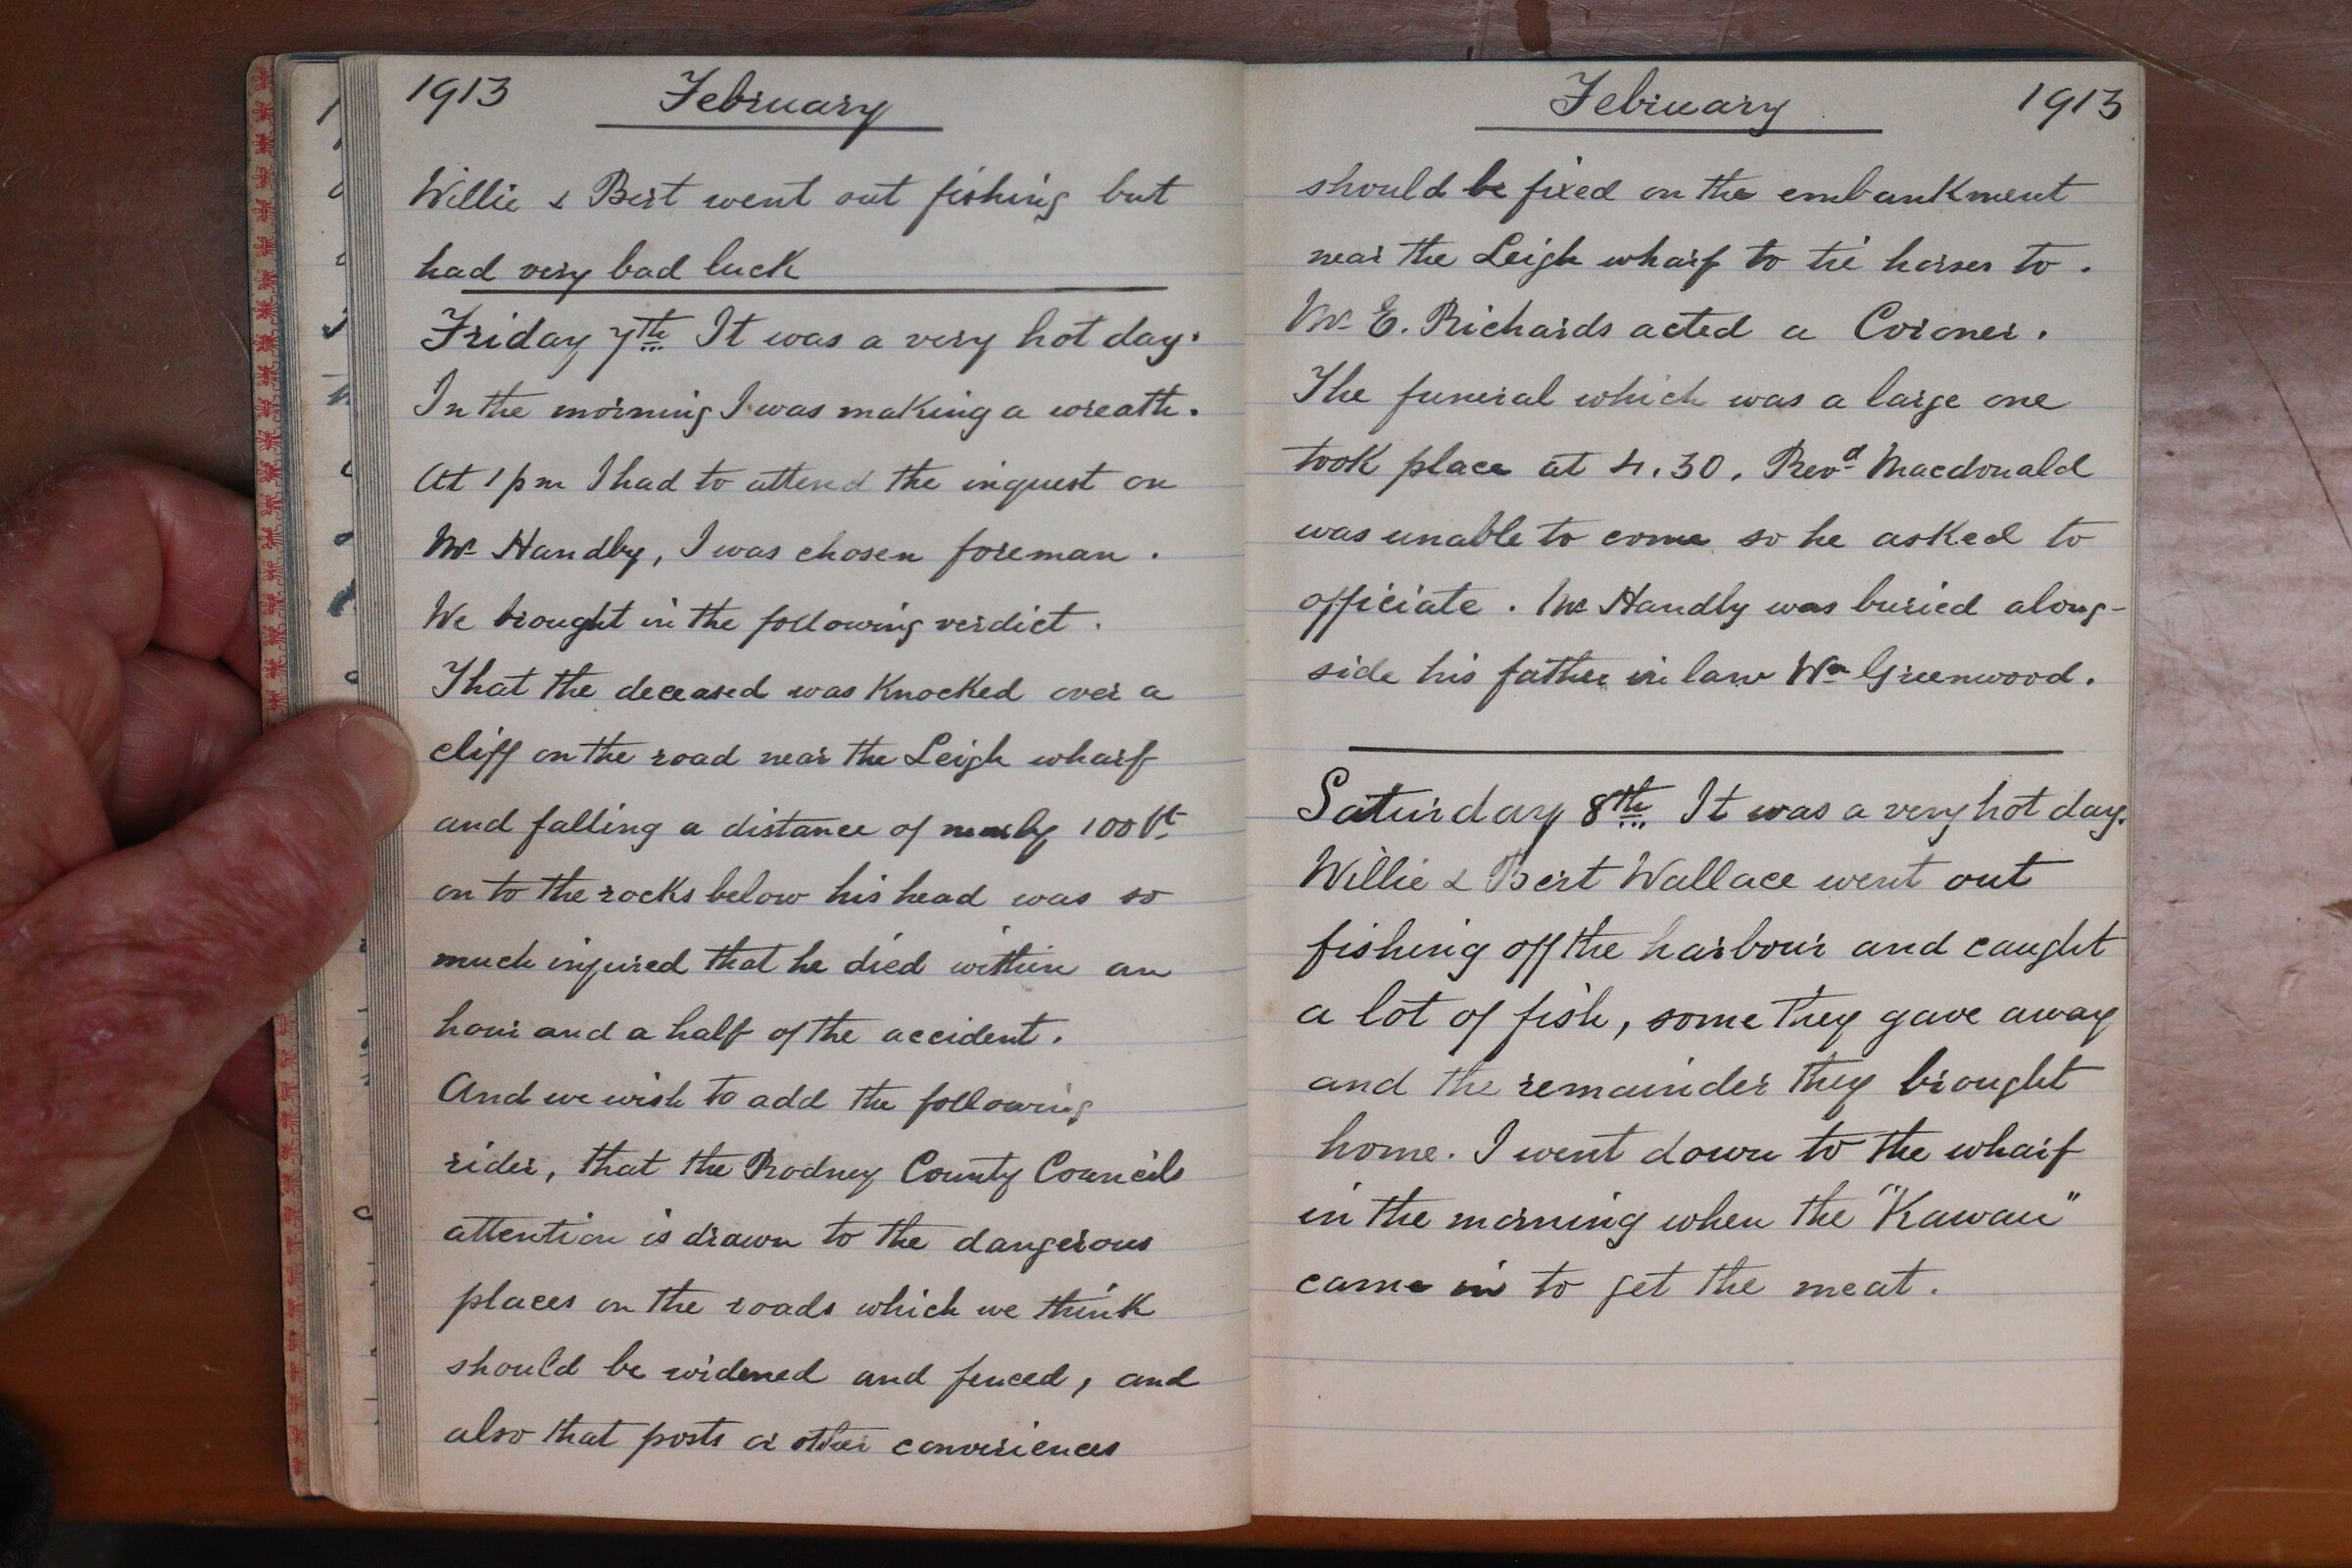 1913 February
Willie & Bert went out fishing but
had very bad luck
Friday 7th It was a very hot day.
In the morning I was making a wreath.
At 1 pm I had to attend the inquest on
Mr Handby, I was chosen foreman.
We brought in the following verdict.
That the deceased was Knocked over a
cliff on the road near the Leigh wharf
and falling a distance of nearly 100 ft
on to the rocks below his head was so
much injured that he died within an
hour and a half of the accident.
And we wish to add the following
rider, that the Rodney County Councils
attention is drawn to the dangerous
places on the roads which we think
should be widened and fenced, and
also that posts or other conveniences
February 1913
should be fixed on the embankment
near the Leigh wharf to tie horses to.
Mr E. Richards acted a Coroner.
The funeral which was a large one
took place at 4.30. Revd Macdonald
was unable to come so he asked to
officiate. Mr Handly was buried along-
side his father in law Wm Greenwood.
Saturday 8th It was a very hot day.
Willie & Bert Wallace went out
fishing off the harbour and caught
a lot of fish, some they gave away
and the remainder they brought
home. I went down to the wharf
in the morning when the "Kawau"
came in to get the meat.